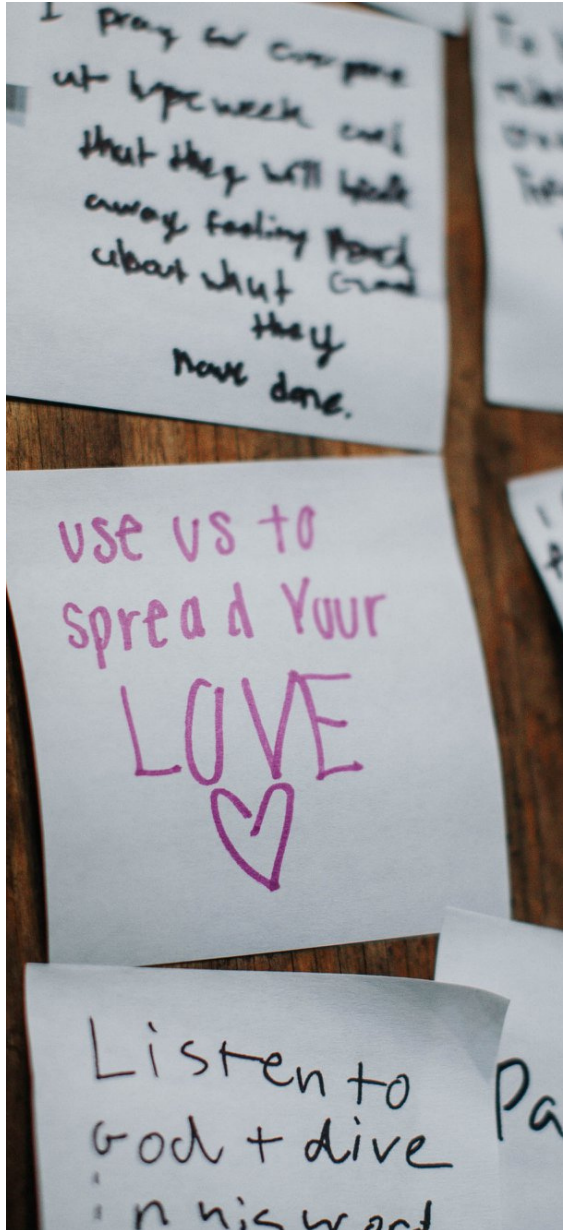 I pray for everyone
at hope week and
that they will walk
away feeling
about what Good
they
have done.
use us to
spread Your
LOVE
Listen to
God + dive
in his word
Pa